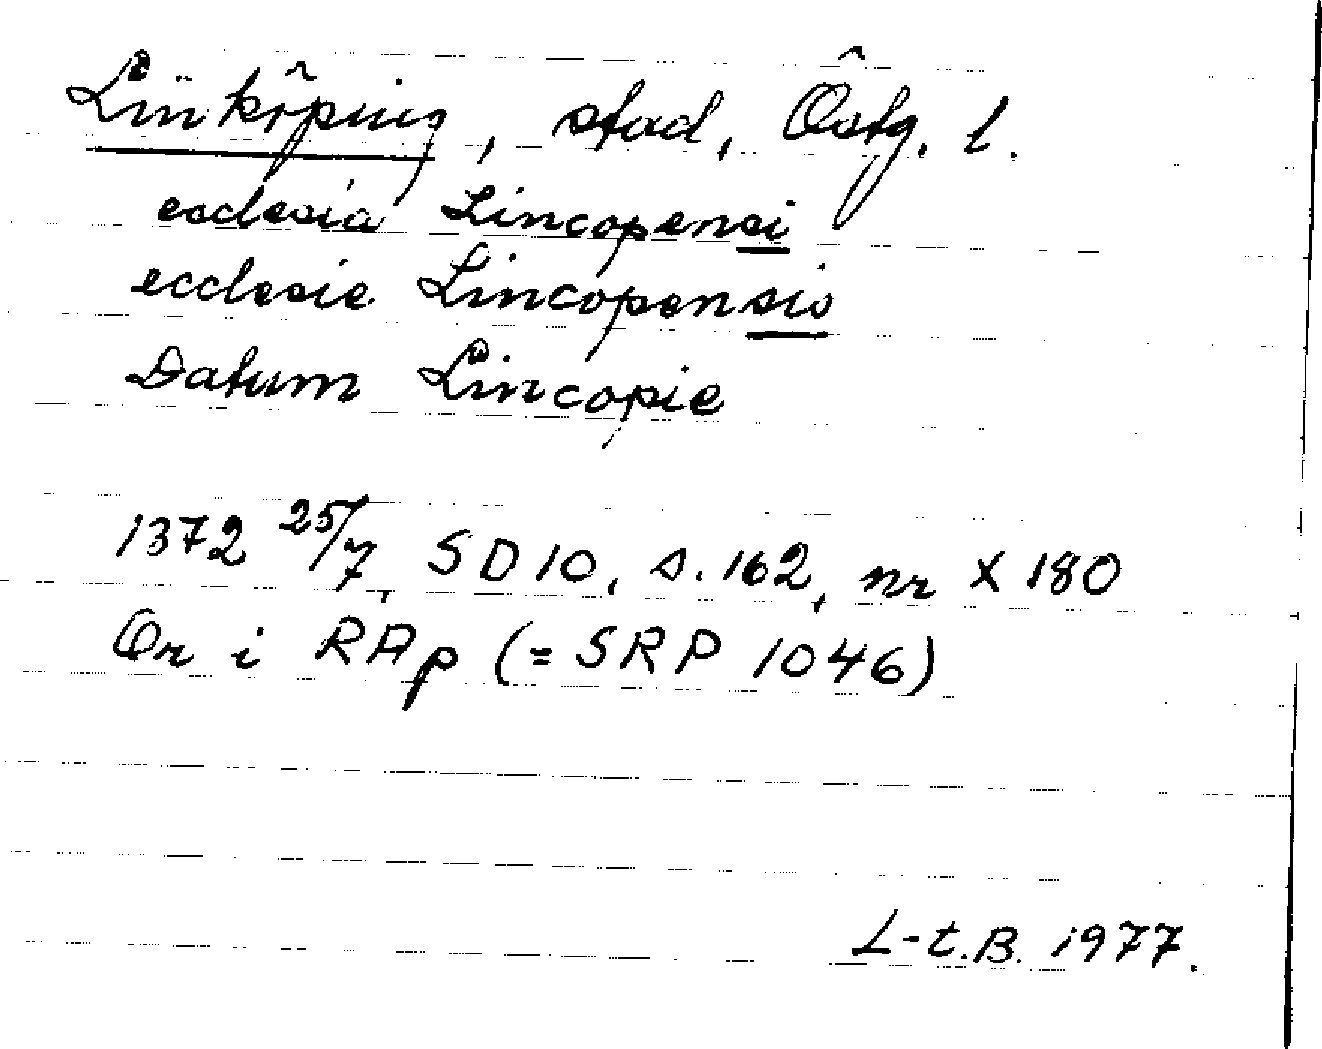 Linköping, stad, Östg. l.
ecclesia Lincopensi
ecclesie Lincopensis
Datum Lincopie
1372 25/7, SD 10, s. 162, nr X 180
Or i RAp (= SRP 1046)
L-t.B. 1977.